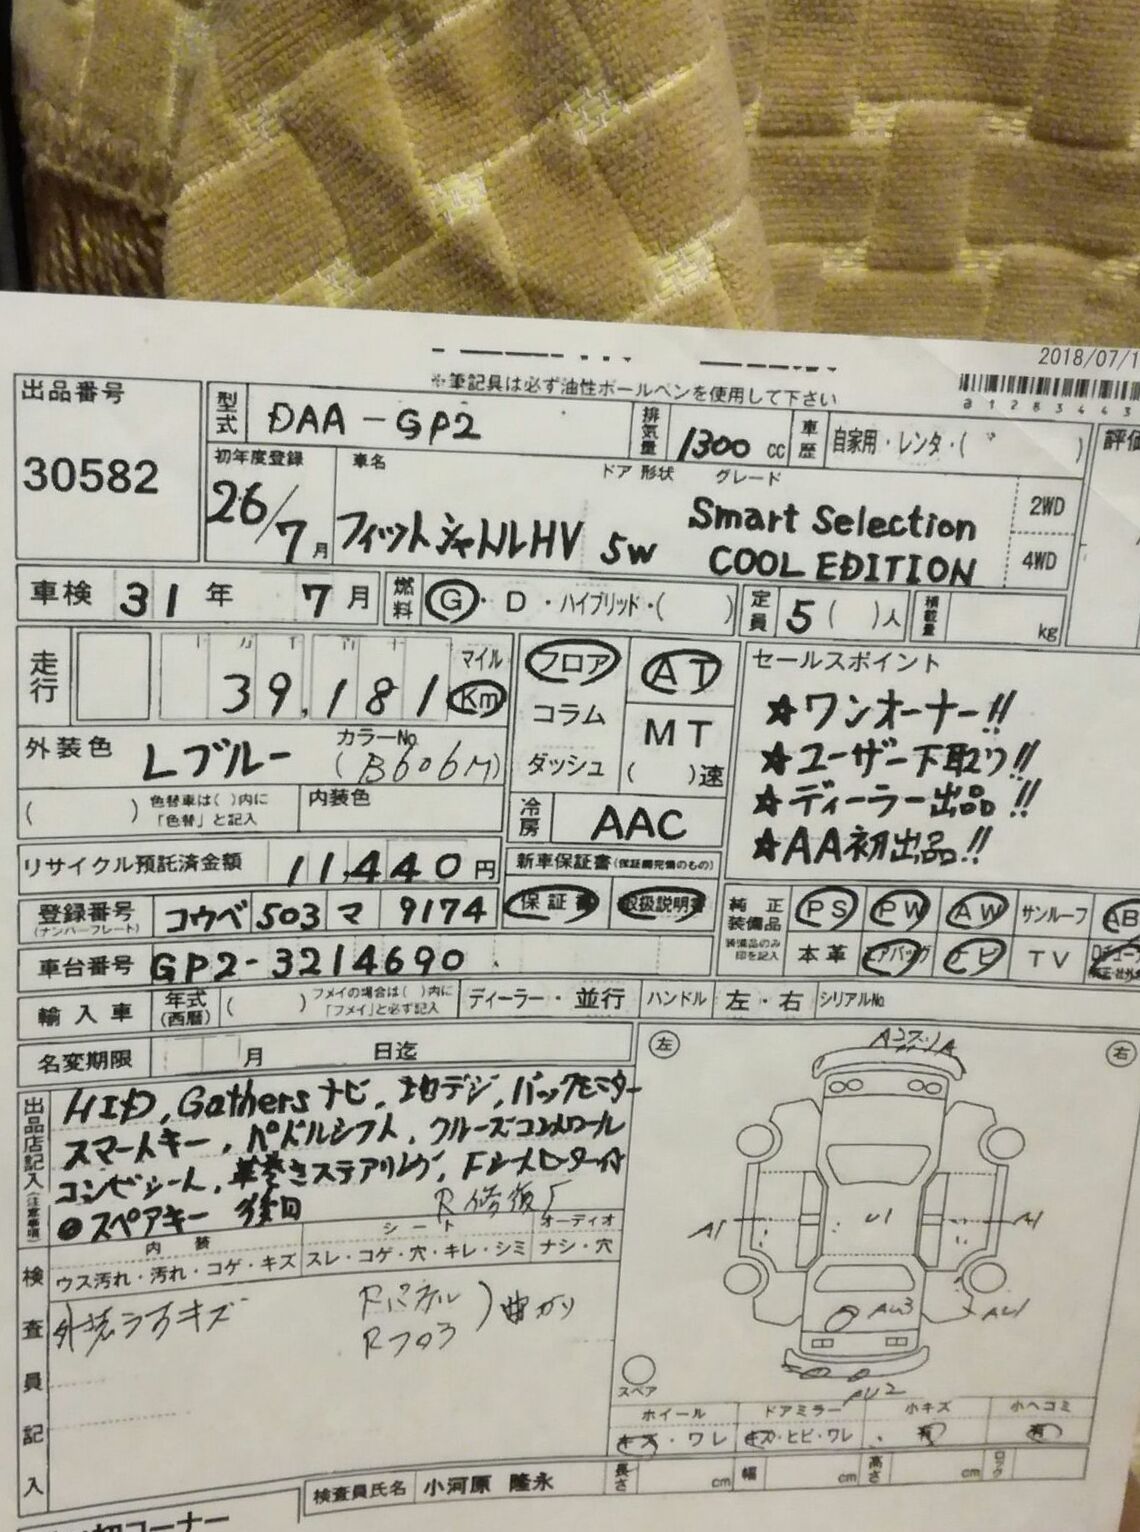 2018/07/1
※筆記具は必ず油性ボールペンを使用して下さい
出品番号
30582
型式 DAA-GP2 排気量 1300 cc 車歴 自家用・レンタ・( )
初年度登録 車名 ドア 形状 グレード
26/7月 フィットシャトルHV 5W Smart Selection
COOL EDITION
2WD
4WD
車検 31年 7月 燃料 G・D・ハイブリッド・( ) 定員 5( )人 積載量 kg
走行 39,181 マイル Km
フロア
コラム
ダッシュ
AT
MT
( )速
外装色 Lブルー カラーNo (B606M)
( ) 色替車は( )内に「色替」と記入 内装色
冷房 AAC
セールスポイント
★ワンオーナー!!
★ユーザー下取り!!
★ディーラー出品!!
★AA初出品!!
リサイクル預託済金額 11,440円
新車保証書(保証書完備のもの)
保証書 取扱説明書
登録番号(ナンバープレート) コウベ 503 マ 9174
純正装備品 PS PW AW サンルーフ AB
装備品のみ印を記入 本革 エアバッグ ナビ TV
車台番号 GP2-3214690
輸入車 年式(西暦) ( ) フメイの場合は( )内に「フメイ」と必ず記入 ディーラー・並行 ハンドル 左・右 シリアルNo
名変期限 月 日迄
出品店記入(注意事項)
HID, Gathersナビ, 地デジ, バックモニター
スマートキー, パドルシフト, クルーズコントロール
コンビシート, 革巻きステアリング,
●スペアキー 後日
R修復
内装 シート オーディオ
ウス汚れ・汚れ・コゲ・キズ スレ・コゲ・穴・キレ・シミ ナシ・穴
検査員記入
Rパネル
Rフロア
)曲がり
左
右
A1
U1
A1
AU3
AU1
AU2
スペア
ホイール ドアミラー 小キズ 小ヘコミ
キズ・ワレ キズ・ヒビ・ワレ 有 有
検査員氏名 小河原 隆永 長さ cm 幅 cm 高さ cm
コーナー